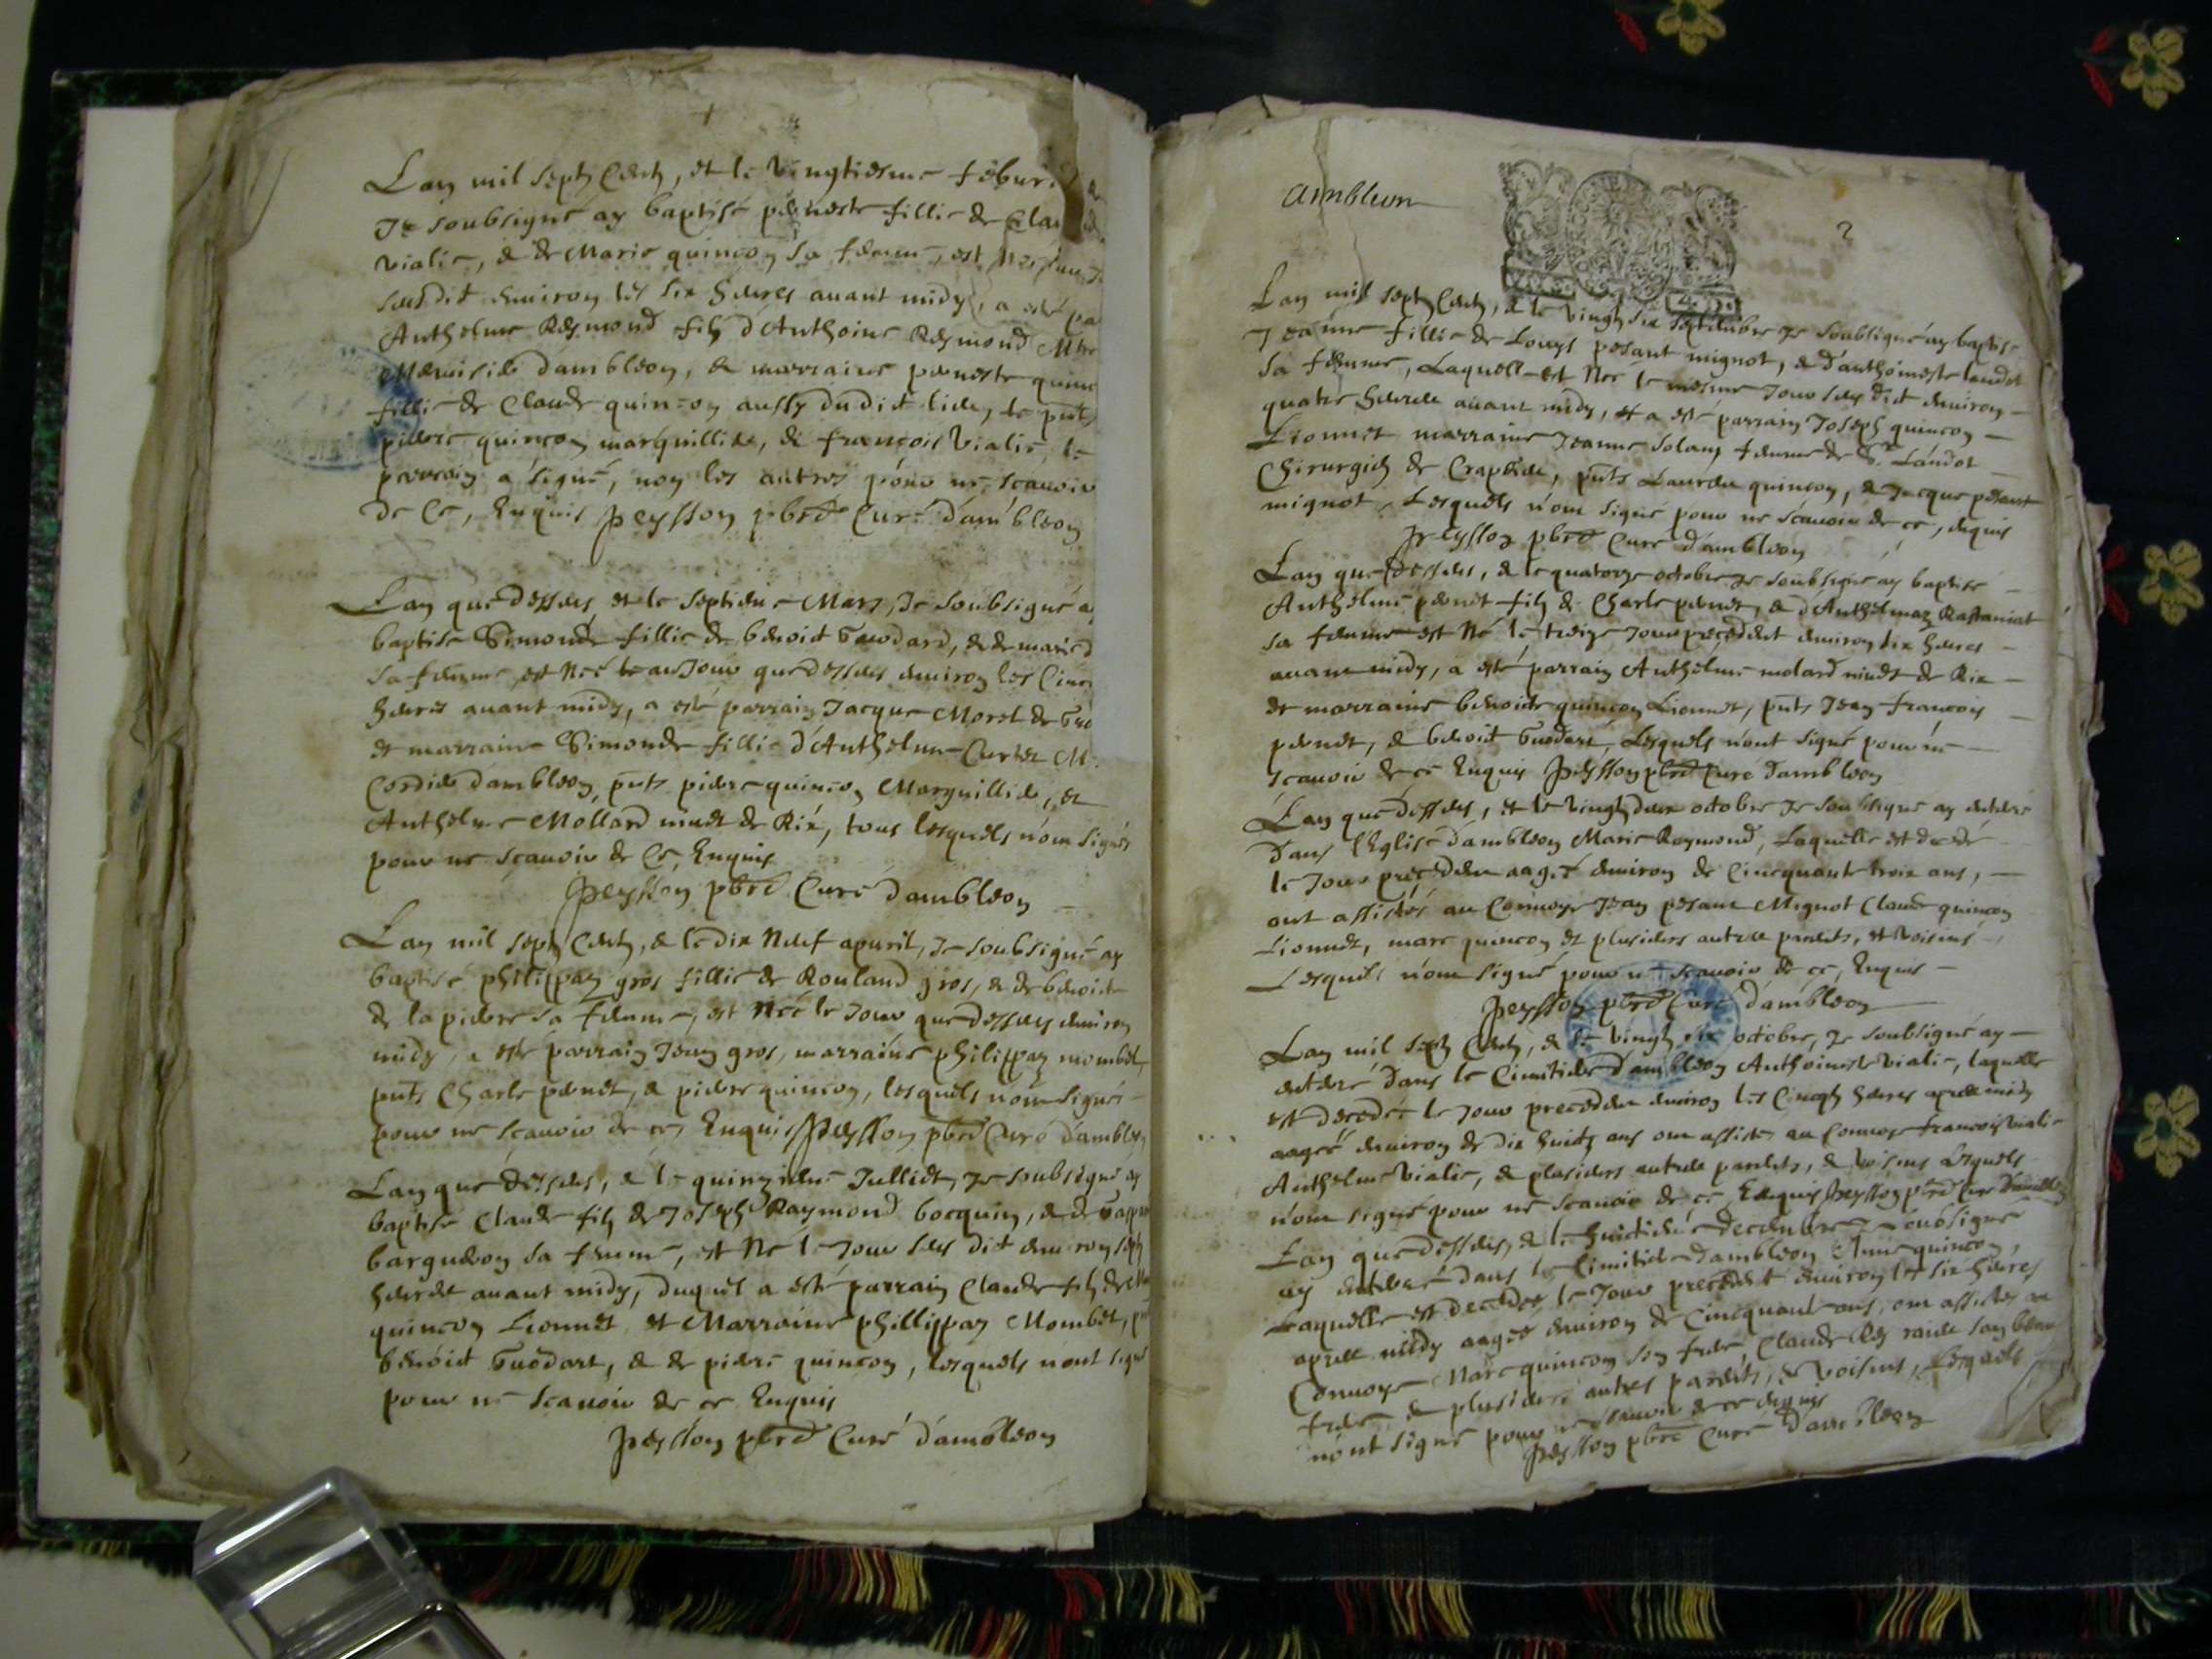 Lan mil sept Cents, et le vingtiesme feburi
Je soubsigné ay baptisé pernette fillie de Clau
vialie, & de Marie quinçon sa femme, est née
susdit environ les six heures avant midy, a esté pa
Anthelme Reymond filz d'Anthoine Reymond Mtre
d'ambleon, & marraine pernette quinc
fillie de Claude quinçon aussy dudit lieu, pnts
pierre quinçon marguillier, & françois vialie, le
parrain a signé, non les autres pour ne sçavoir
de Ce, Enquis peysson pbre Curé d'ambleon
Lan que dessus, et le septieme Mars, Je soubsigné a
baptisé Simonde fillie de benoit Guodard, & de marie
sa femme, est née au Jour que dessus environ les Cinq
heures avant midy, a esté parrain Jacque Morel de
et marraine Simonde fillie d'Anthelme Curtet M
Cordier d'ambleon, pnts pierre quinçon Marguillier, et
Anthelme Mollard de Rix, tous lesquels n'ont signés
pour ne sçavoir de Ce, Enquis
peysson pbre Curé d'ambleon
Lan mil sept Cents, & le dix neuf apvril, Je soubsigné ay
baptisé philippaz gros fillie de Rouland gros, & de benoite
de la pierre sa femme, est née le Jour que dessus environ
midy, a esté parrain Jean gros, marraine philippaz mombel,
pnts Charle pernet, & pierre quinçon, lesquels n'ont signés
pour ne sçavoir de ce, Enquis peysson pbre Curé d'ambleon
Lan que dessus, & le quinzieme Julliet, Je soubsigné ay
baptisé Claude filz de Joseph Raymond bocquin, & de
sa femme, est né le Jour sus dit environ sept
heures avant midy, duquel a esté parrain Claude filz de
quinçon Lionnet, et Marraine phillippaz Mombel,
benoit Guodart, & de pierre quinçon, lesquels n'ont signé
pour ne sçavoir de ce Enquis
peysson pbre Curé d'ambleon
Ambleon
2
Lan mil sept Cents, & le vingt six septembre Je soubsigné ay baptisé
Jeanne fillie de Louys pesant mignot, & d'anthoineste landot
sa femme, Laquelle est née le mesme Jour sus dit environ
quatre heures avant midy, et a esté parrain Joseph quinçon
Lionnet marraine Jeanne solany femme de Sr. Landot
Chirurgien de, pnts Laurens quinçon, & Jacque pesant
mignot, Lesquels n'ont signé pour ne sçavoir de ce, enquis
peysson pbre Curé d'ambleon
Lan que dessus, & le quatorze octobre Je soubsigné ay baptisé
Anthelme pernet filz de Charle pernet, & d'Anthelmaz
sa femme est né le treize Jour precedent environ six heures
avant midy, a esté parrain Anthelme molard de Rix
et marraine benoite quinçon Lionnet, pnts Jean françois
pernet, & benoit Guodard, Lesquels n'ont signé pour ne
sçavoir de ce Enquis peysson pbre Curé d'ambleon
Lan que dessus, et le vingt deux octobre Je soubsigné ay enterré
dans l'Eglise d'ambleon Marie Reymond, Laquelle est decedé
le Jour precedent aagée environ de Cincquante trois ans,
ont assistés au Convoye Jean pesant Mignot Claude quinçon
Lionnet, marc quinçon et plusieurs autres parents, et voisins
Lesquels n'ont signé pour ne sçavoir de ce, Enquis
peysson pbre Curé d'ambleon
Lan mil sept Cents, & le vingt six octobre, Je soubsigné ay
enterré dans le Cimitiere d'ambleon Anthoineste vialie, laquelle
est decedée le Jour precedent environ les Cinq heures apres midy
aagée environ de dix huit ans ont assistés au Convoye françois vialie
Anthelme vialie, & plusieurs autres parents, & voisins Lesquels
n'ont signé pour ne sçavoir de ce Enquis peysson pbre Curé d'ambleon
Lan que dessus, & le huictieme decembre Je soubsigné
ay enterré dans le Cimitiere d'ambleon Anne quinçon,
Laquelle est decedée le Jour precedent environ les six heures
apres midy aagée environ de Cincquante ans, ont assistés au
Convoye Marc quinçon son frere, Claude son beau
frere & plusieurs autres parents, & voisins, Lesquels
n'ont signé pour ne sçavoir de ce enquis
peysson pbre Curé d'ambleon